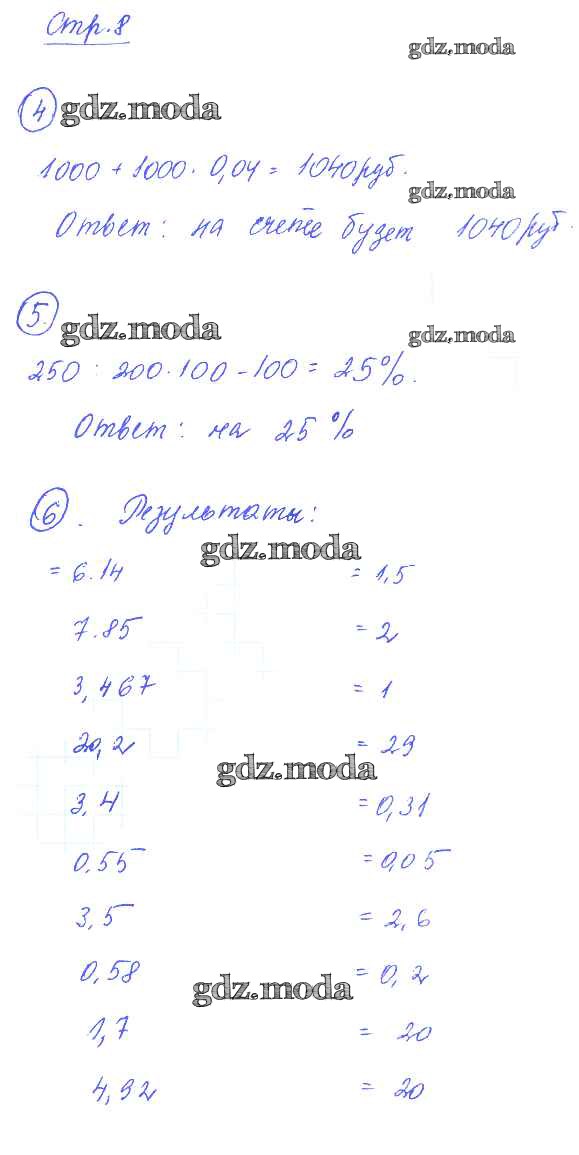 Стр. 8
gdz.moda
4 gdz.moda
1000 + 1000 · 0,04 = 1040 руб.
gdz.moda
Ответ: на счете будет 1040 руб.
5. gdz.moda
gdz.moda
250 : 200 · 100 - 100 = 25%.
Ответ: на 25 %
6. Результаты:
gdz.moda
= 6.14 = 1,5
7.85 = 2
3,467 = 1
20,2 = 29
gdz.moda
3,4 = 0,31
0,55 = 0,05
3,5 = 2,6
0,58 = 0,2
gdz.moda
1,7 = 20
4,92 = 20